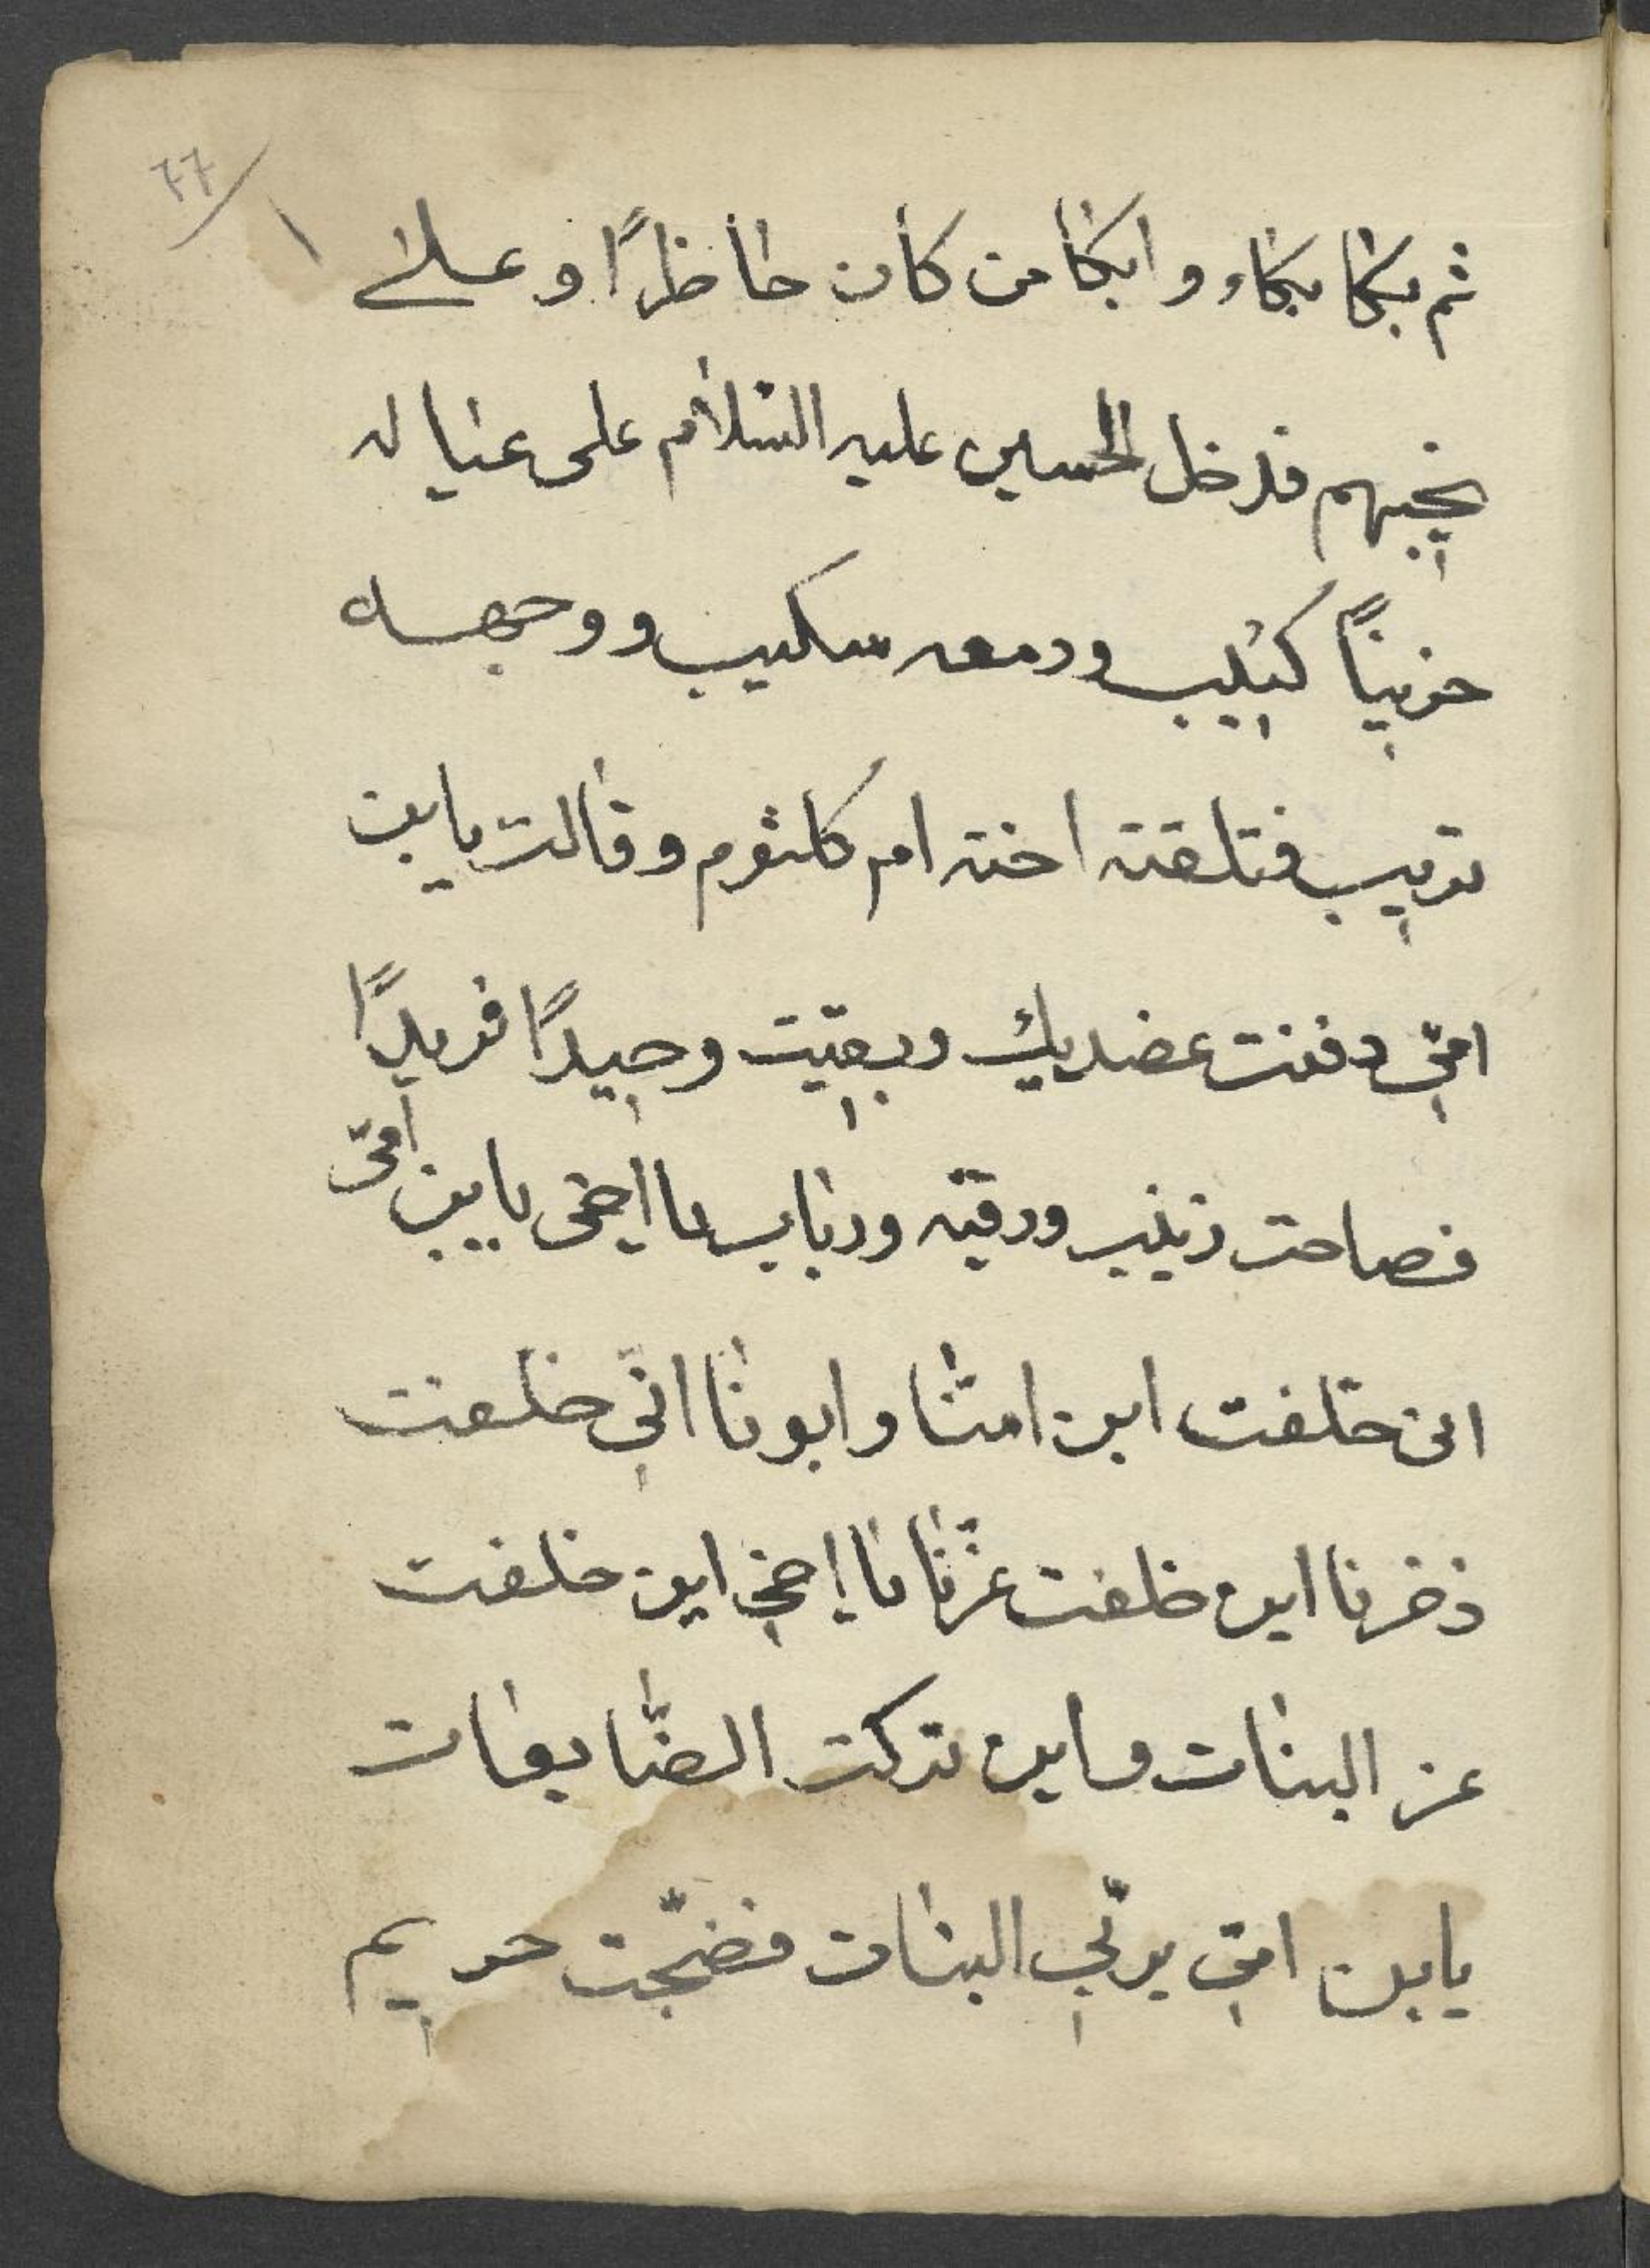 ٦٦
ثم بكا بكاء وابكا من كان حاظرًا وعلا
نحيبهم فدخل الحسين عليه السّلام على عيال له
حزينًا كئيب ودمعه سكيب ووجهه
تريب فتلقته اخته ام كلثوم وقالت يابن
امّي دفنت عضديك وبقيّت وحيدًا فريدًا
فصاحت زينب ورقيّه ورباب يا اخي يابن امّي
اين خلّفت ابن امنّا وابونا انّي خلّفت
ذخرنا اين خلفت عزّنا يا اخي اين خلفت
عز البنات واين تركت الضّايعات
يابن امّي يربّي البنات فضجّت حريم